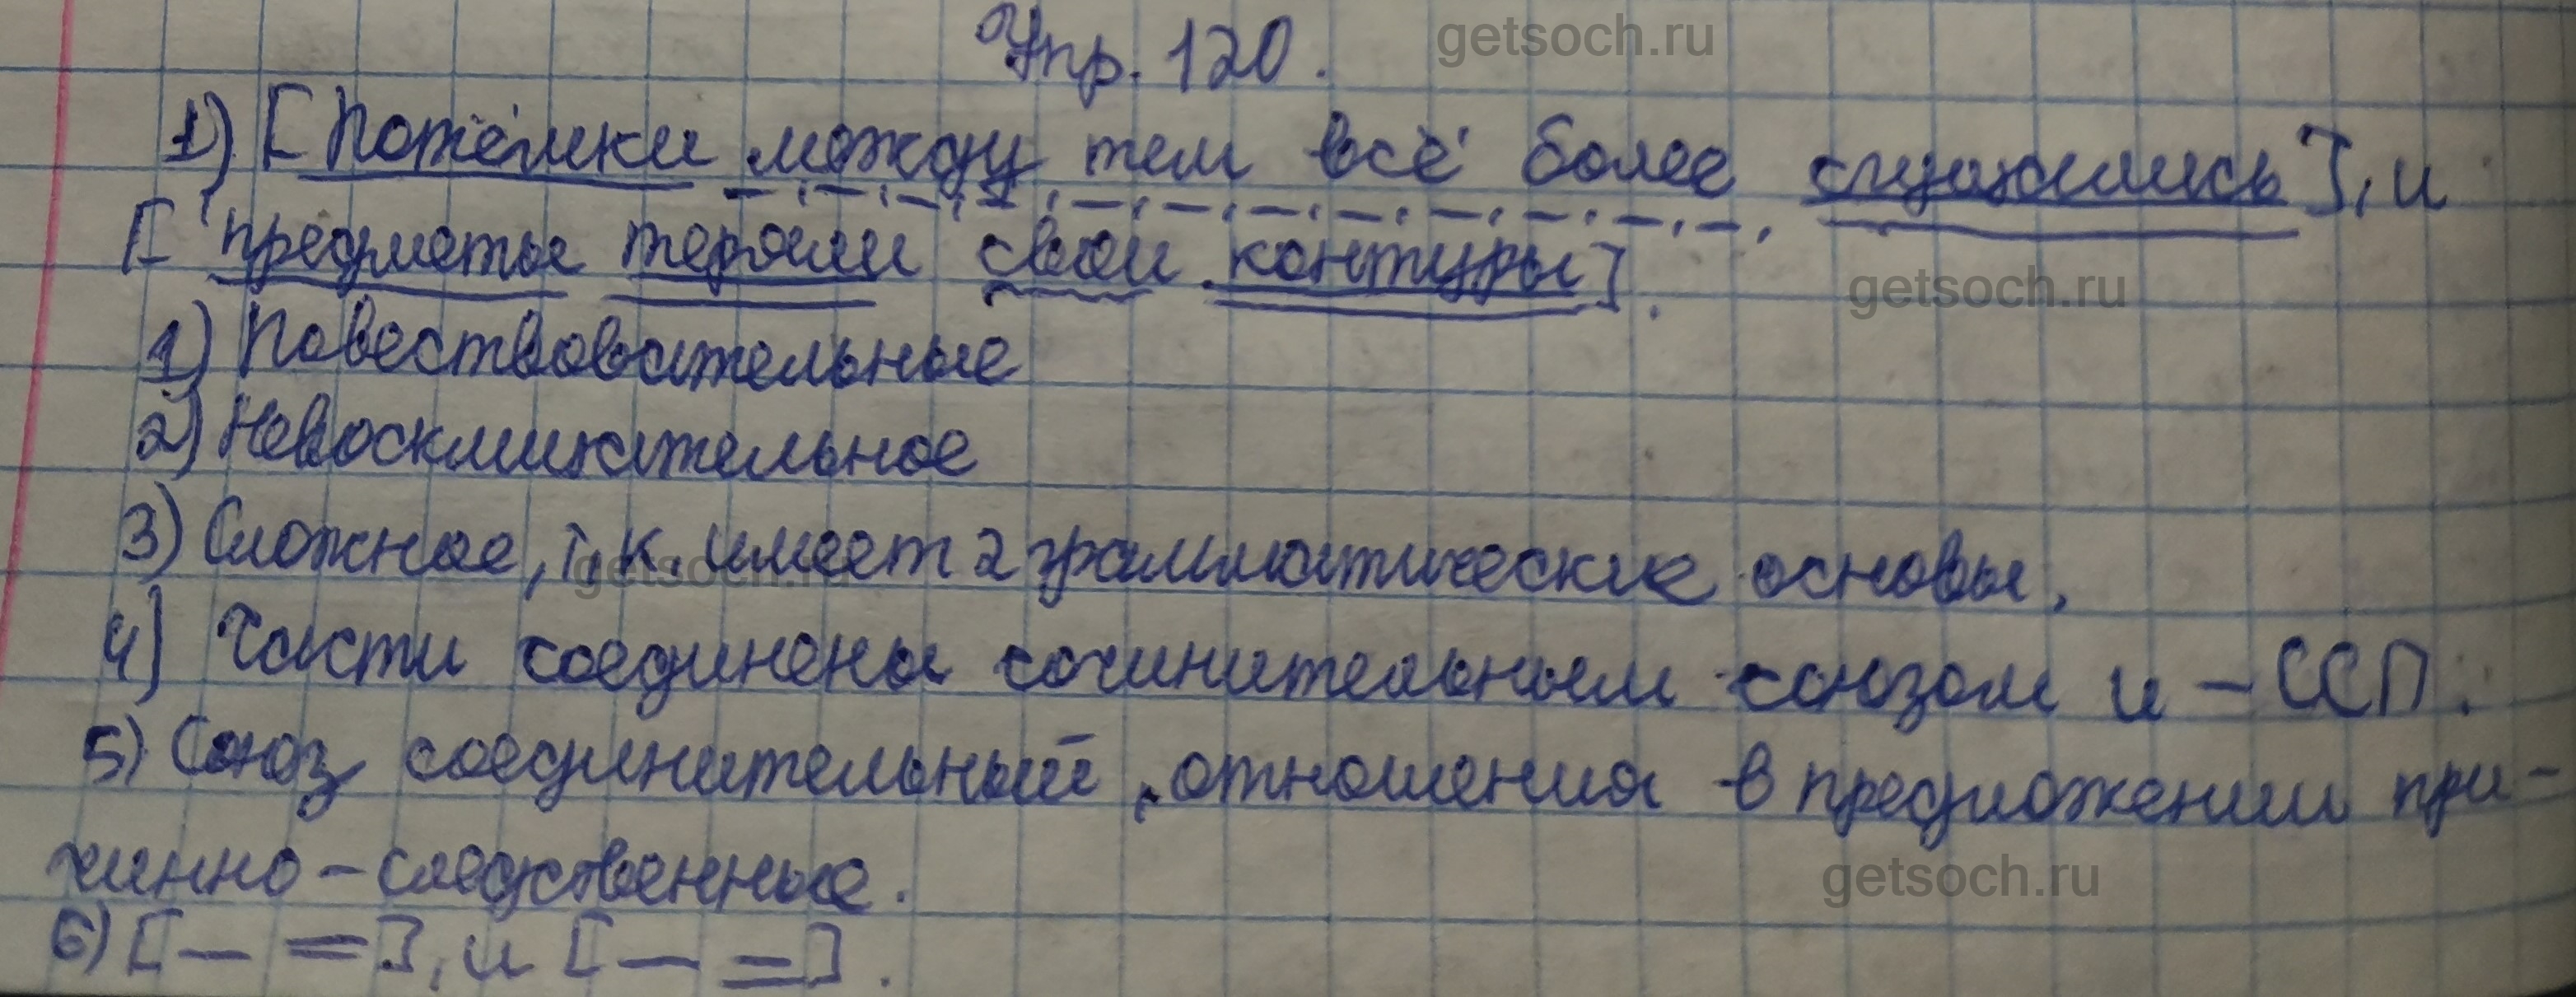 Упр. 120.
getsoch.ru
1) [Потёмки между тем всё более сгущались], и
[предметы теряли свои контуры].
getsoch.ru
1) Повествовательные
2) Невосклицательное
3) Сложное, т.к. имеет 2 грамматические основы.
getsoch.ru
4) Части соединены сочинительным союзом и – ССП.
5) Союз соединительный, отношения в предложении при-
чинно-следственные.
getsoch.ru
6) [— =], и [— =].